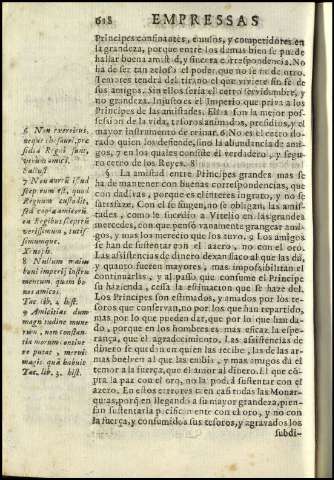 618 EMPRESSAS
Principes confinantes, emulos, y competidores en
la grandeza, porque entre los demas bien se puede
hallar buena amistad, y sincera correspondencia. No
ha de ser tan zeloso el poder que no se fie de otro.
Temores tendrà del tirano el que viviere sin fe de
sus amigos. Sin ellos seria el cetro servidumbre, y
no grandeza. Injusto es el Imperio que priva a los
Principes de las amistades. Ellas son la mejor pos-
session de la vida, tesoros animados, presidios, y el
mayor instrumento de reinar. 6 No es el cetro do-
rado quien los defiende, sino la abundancia de ami-
gos, 7 en los quales consiste el verdadero, y segu-
ro cetro de los Reyes. 8
§ La amistad entre Principes grandes mas se
ha de mantener con buenas correspondencias, que
con dadivas, porque es el interes ingrato, y no se
satisfaze. Con el se fingen, no se obligan, las amis-
tades, como le sucedio a Vitelio en las grandes
mercedes, con que pensò vanamente grangear ami-
gos, y mas los mereció que los tuvo. 9 Los amigos
se han de sustentar con el azero, no con el oro.
Las asistencias de dinero dexan flaco al que las dà,
y quanto fueren mayores, mas imposibilitan el
continuarlas, y al passo que consume el Principe
su hazienda, cessa la estimacion que se haze del.
Los Principes son estimados, y amados por los te-
soros que conservan, no por los que han repartido,
mas por lo que pueden dar, que por lo que han da-
do, porque en los hombres es mas eficaz la espe-
rança, que el agradecimiento. Las asistencias de
dinero se quedan en quien las recibe, las de las ar-
mas buelven al que las embia, y mas amigos dà el
temor a la fuerça, que el amor al dinero. El que cõ-
pra la paz con el oro, no la podrà sustentar con el
azero. En estos errores caen casi todas las Monar-
quias, porq̃ en llegando a su mayor grandeza, pien-
san sustentarla pacificamente con el oro, y no con
la fuerça, y consumidos sus tesoros, y agravados los
subdi-
6 Non exercitus,
neque thesauri, præ-
sidia Regni sunt,
verum amici.
Sallust.
7 Non aureum istud
sceptrum est, quod
Regnum custodit,
sed copia amicorum
ea Regibus sceptrũ
verissimum, tutis-
simumque.
Xenoph.
8 Nullum maius
boni imperij instru-
mentum, quam bo-
nos amicos.
Tac. lib. 4. hist.
9 Amicitias dum
magnitudine mune-
rum, non constan-
tia morum contine-
re putat, meruit
magis, quã habuit.
Tac. lib. 3. hist.